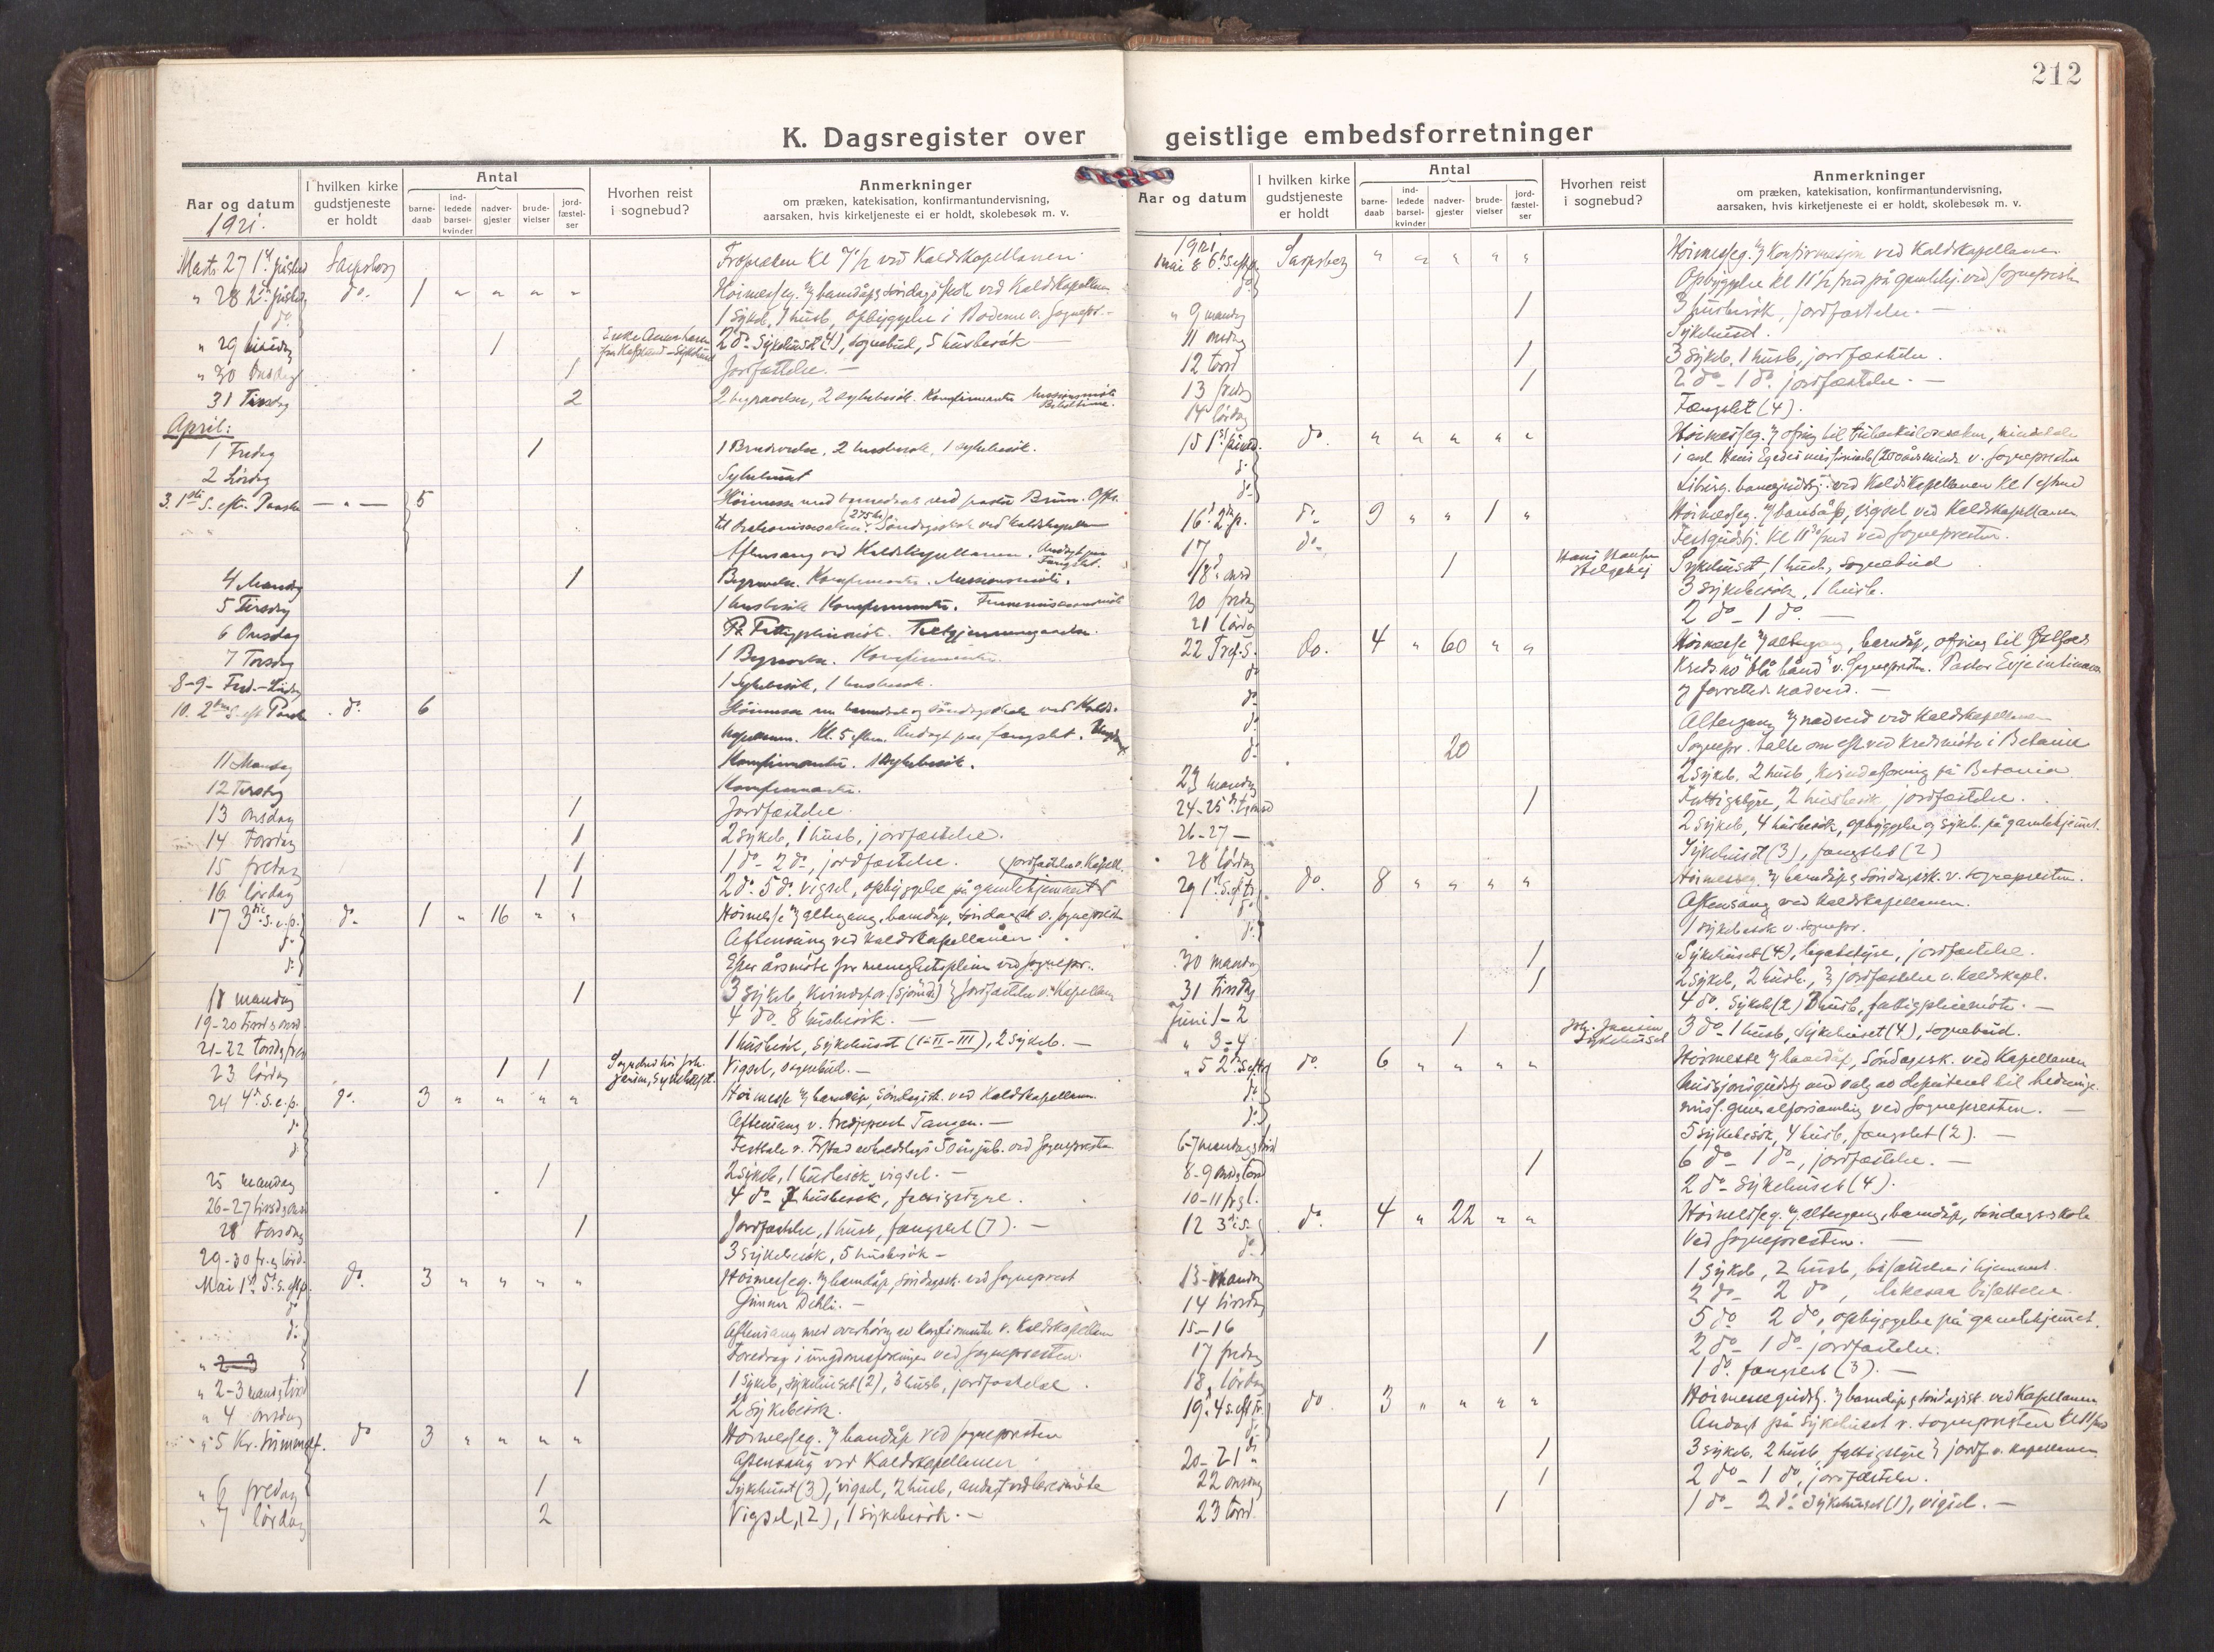 212
K. Dagsregister over geistlige embedsforretninger
Aar og datum
I hvilken kirke gudstjeneste er holdt
Antal
barne-daab
ind-ledede barsel-kvinder
nadver-gjester
brude-vielser
jord-fæstel-ser
Hvorhen reist i sognebud?
Anmerkninger
om præken, katekisation, konfirmantundervisning,
aarsaken, hvis kirketjeneste ei er holdt, skolebesøk m. v.
1921.
Marts 27 1ste Sarpsborg Fropræken Kl 7 1/2 ved Kaldskapellanen.
" 28 2den do. 1 " " " " Höimesseg. ved Kaldskapellan
do. 1 Sykeb, 1 husb, opbyggelse i v. Sognepr. -
" 29 1 2 do - Sykehuset (4), sognebud, 5 husbesök
" 30 Onsdag 1 Jordfæstelse. -
31 2 2 begravelser, 2 sykebesök. Konfirmanter
April:
1 Fredag 1 1 Brudevielse, 2 husbesök, 1 sykebesök.
2 Lördag Sykehuset
3. 1ste S. eft. Paaske - " - 5 Höimesse med barnedaab ved pastor Bruun. Offr.
(275 kr) Söndagsskole ved Kaldskapellan
Aftensang ved Kaldskapellanen. Andagt paa Fængslet.
4 Mandag 1 Begravelse. Konfirmanter. Missionsmöte.
5 Tirsdag 1 husbesök Konfirmanter.
6 Onsdag
7 Torsdag 1 Begravelse. Konfirmanter.
8-9- Fred.-Lördag 1 Sykebesök, 1 husbesök.
10. 2den S. eft Paaske do. 6 Höimesse med barnedaab og Söndagsskole ved Kalds-
kapellanen. Kl. 5 eftm. Andagt paa fængslet.
11 Mandag Konfirmanter. 1 Sykebesök.
12 Tirsdag Konfirmanter.
13 onsdag 1 Jordfæstelse.
14 torsdag 1 2 sykeb, 1 husb, jordfæstelse.
15 fredag 1 1 do - 2 do -, jordfæstelse. (jordfæstelse v. Kapell.
16 lördag 1 1 2 do - 5 do. vigsel, opbyggelse på gamlehjemmet
17 3die S. e. p. do. 1 " 16 " " Höimesse m altergang, barndåp, söndagssk v. sogneprest
do Aftensang ved kaldskapellanen.
do årsmöte for menighetspleien ved sognepr..
18 mandag 1 3 sykeb, Kvindefor (sjömds) jordfæstelse v. Kapellan
19-20 tirsd & onsd. 4 do - 8 husbesök. -
21-22 torsdg fre 1 husbesök, Sykehuset (I-II-III), 2 sykeb. -
23 lördag 1 1 Sognebud hos Joh. Jansen, Sykehuset. Vigsel, sognebud. -
24 4de S. e. p. do. 3 " " " " Höimesse m barndåp, söndagssk. ved Kaldskapellan.
do Aftensang v. hredsprest Tangen. -
do Festtale v. 50 års jub. ved Sognepresten
25 mandag 1 2 sykeb, 1 husbesök, vigsel. -
26-27 tirsd & ons 4 do - 7 husbesök, fattigstyre.
28 torsdag 1 Jordfæstelse, 1 husb, fængslet (7). -
29-30 fr. & lörd. 3 sykebesök, 5 husbesök -
Mai 1ste 5te S. e. p. do. 3 " " " " Höimesseg. m barndåp, söndagssk. ved sogneprest
do Gunnar Dehli. -
do Aftensang med overhöring av konfirmanter v. Kaldskapellan
Foredrag i ungdomsforeningen ved sognepresten.
" 2-3
" 2-3 mand & tirsd 1 1 sykeb, sykehuset (2), 3 husb, jordfæstelse.
" 4 onsdag 2 sykebesök.
" 5 Kr. himmelf. do 3 " " " " Höimesseg. m barndåp ved sognepresten
Aftensang ved Kaldskapellanen
" 6 fredag 1 Sykehuset (3), vigsel, 2 husb, andagt
" 7 lördag 2 Vigsel, (2), 1 sykebesök. -
Aar og datum
I hvilken kirke gudstjeneste er holdt
Antal
barne-daab
ind-ledede barsel-kvinder
nadver-gjester
brude-vielser
jord-fæstel-ser
Hvorhen reist i sognebud?
Anmerkninger
om præken, katekisation, konfirmantundervisning,
aarsaken, hvis kirketjeneste ei er holdt, skolebesøk m. v.
1921
mai 8 6te S. eft p Sarpsborg " " " " " Höimesseg. m konfirmasjon ved Kaldskapellanen
do Opbyggelse kl 11 1/2 på gamlehj. ved sognepresten
" 9 mandag 1 3 husbesök, jordfæstelse. -
11 onsdag Sykehuset.
12 torsd 1 3 sykeb, 1 husb, jordfæstelse.
13 fredag 1 2 do - 1 do. jordfæstelse. -
14 lördag Fængslet (4).
15 1ste pinsed. do. " " " " " Höimesseg. m ofring til tuberkulosesaken, mindetale
do i anl Hans Egedes v. Sognepresten
do ved Kaldskapellanen Kl 1
16. 2den p. do. 9 " " 1 " Höimesseg. m barndåp, vigsel ved Kaldskapellanen
17 do. Festgudstj. Kl ved sognepresten.
18. onsd 1 Hans Hansen Sykehuset, 1 husb, sognebud
20 fredag 3 sykebesök, 1 husb.
21 lördag 2 do - 1 do. -
22 Tref. S. do. 4 " 60 " " Höimesse m altergang, barndåp, ofring til Östfold
do Kreds av "blå bånd" v. Sognepresten. Pastor Evje
do m forrettede nadverd. -
do Altergang m nadverd ved Kaldskapellanen
do 20 Sognepr. talte om eft. ved kredsmöte i Betania
23 mandag 2 sykeb. 2 husb, kvindeforening på Betania
24-25 1 Fattigstyre, 2 husbesök, jordfæstelse.
26-27 - 2 sykeb, 4 husbesök, opbyggelse og sykeb. på gamlehjemmet.
28 lördag Sykehuset (3), fængslet (2)
29 1ste S. e. tr. do. 8 " " " " Höimesseg. m barndåp & söndagssk. v. sognepresten.
do Aftensang ved Kaldskapellanen.
do 1 sykebesök v. sognepr.
30 mandag 1 Sykehuset (4), legatstyre, jordfæstelse.
31 tirsdag 1 2 sykeb, 2 husb., jordfæstelse v. kaldskapl.
Juni 1-2 4 do. Sykeh (2) 3 husb, fattigpleiemöte. -
" 3-4 1 Joh. Jansen Sykehuset 3 do - 1 husb, Sykehuset (4), sognebud.
" 5 2den S. eft tr do 6 " " " " Höimesse m barndåp, Söndagssk. ved Kapellanen
do Missjonsgudstj med valg av deputeret til hedninge
do miss. generalforsamling ved sognepresten. -
6-7 mandag & tirsd 5 sykebesök, 4 husb, fængslet (2). -
8-9 onsd & torsd 1 6 do - 1 do -, jordfæstelse. -
10-11 fr & l. 2 do - Sykehuset (4).
12 3die S. do. 4 " 22 " " Höimesseg. m altergang, barndåp, söndagsskole
do ved sognepresten. -
13- mandag 1 sykeb, 2 husb, bisættelse i hjemmet.
14 tirsdag 2 do - 2 do, likesaa bisættelse.
15-16 5 do 2 do, opbyggelse på gamlehjemmet.
17 fredag 1 2 do - 1 do - jordfæstelse.
18 lördag 1 do. fængslet (3). -
19. 4 s. eft tr. do. 3 " " " " Höimessegudstj. m barndåp & söndagssk. ved Kapellanen
do Andagt på Sykehuset v. sognepresten
20-21 1 3 sykeb, 2 husb, fattigstyre jordf v. Kapellanen
22 onsdag 1 2 do - 1 do, jordfæstelse.
23 torsd. 1 1 do - 2 do. Sykehuset (1), vigsel. -